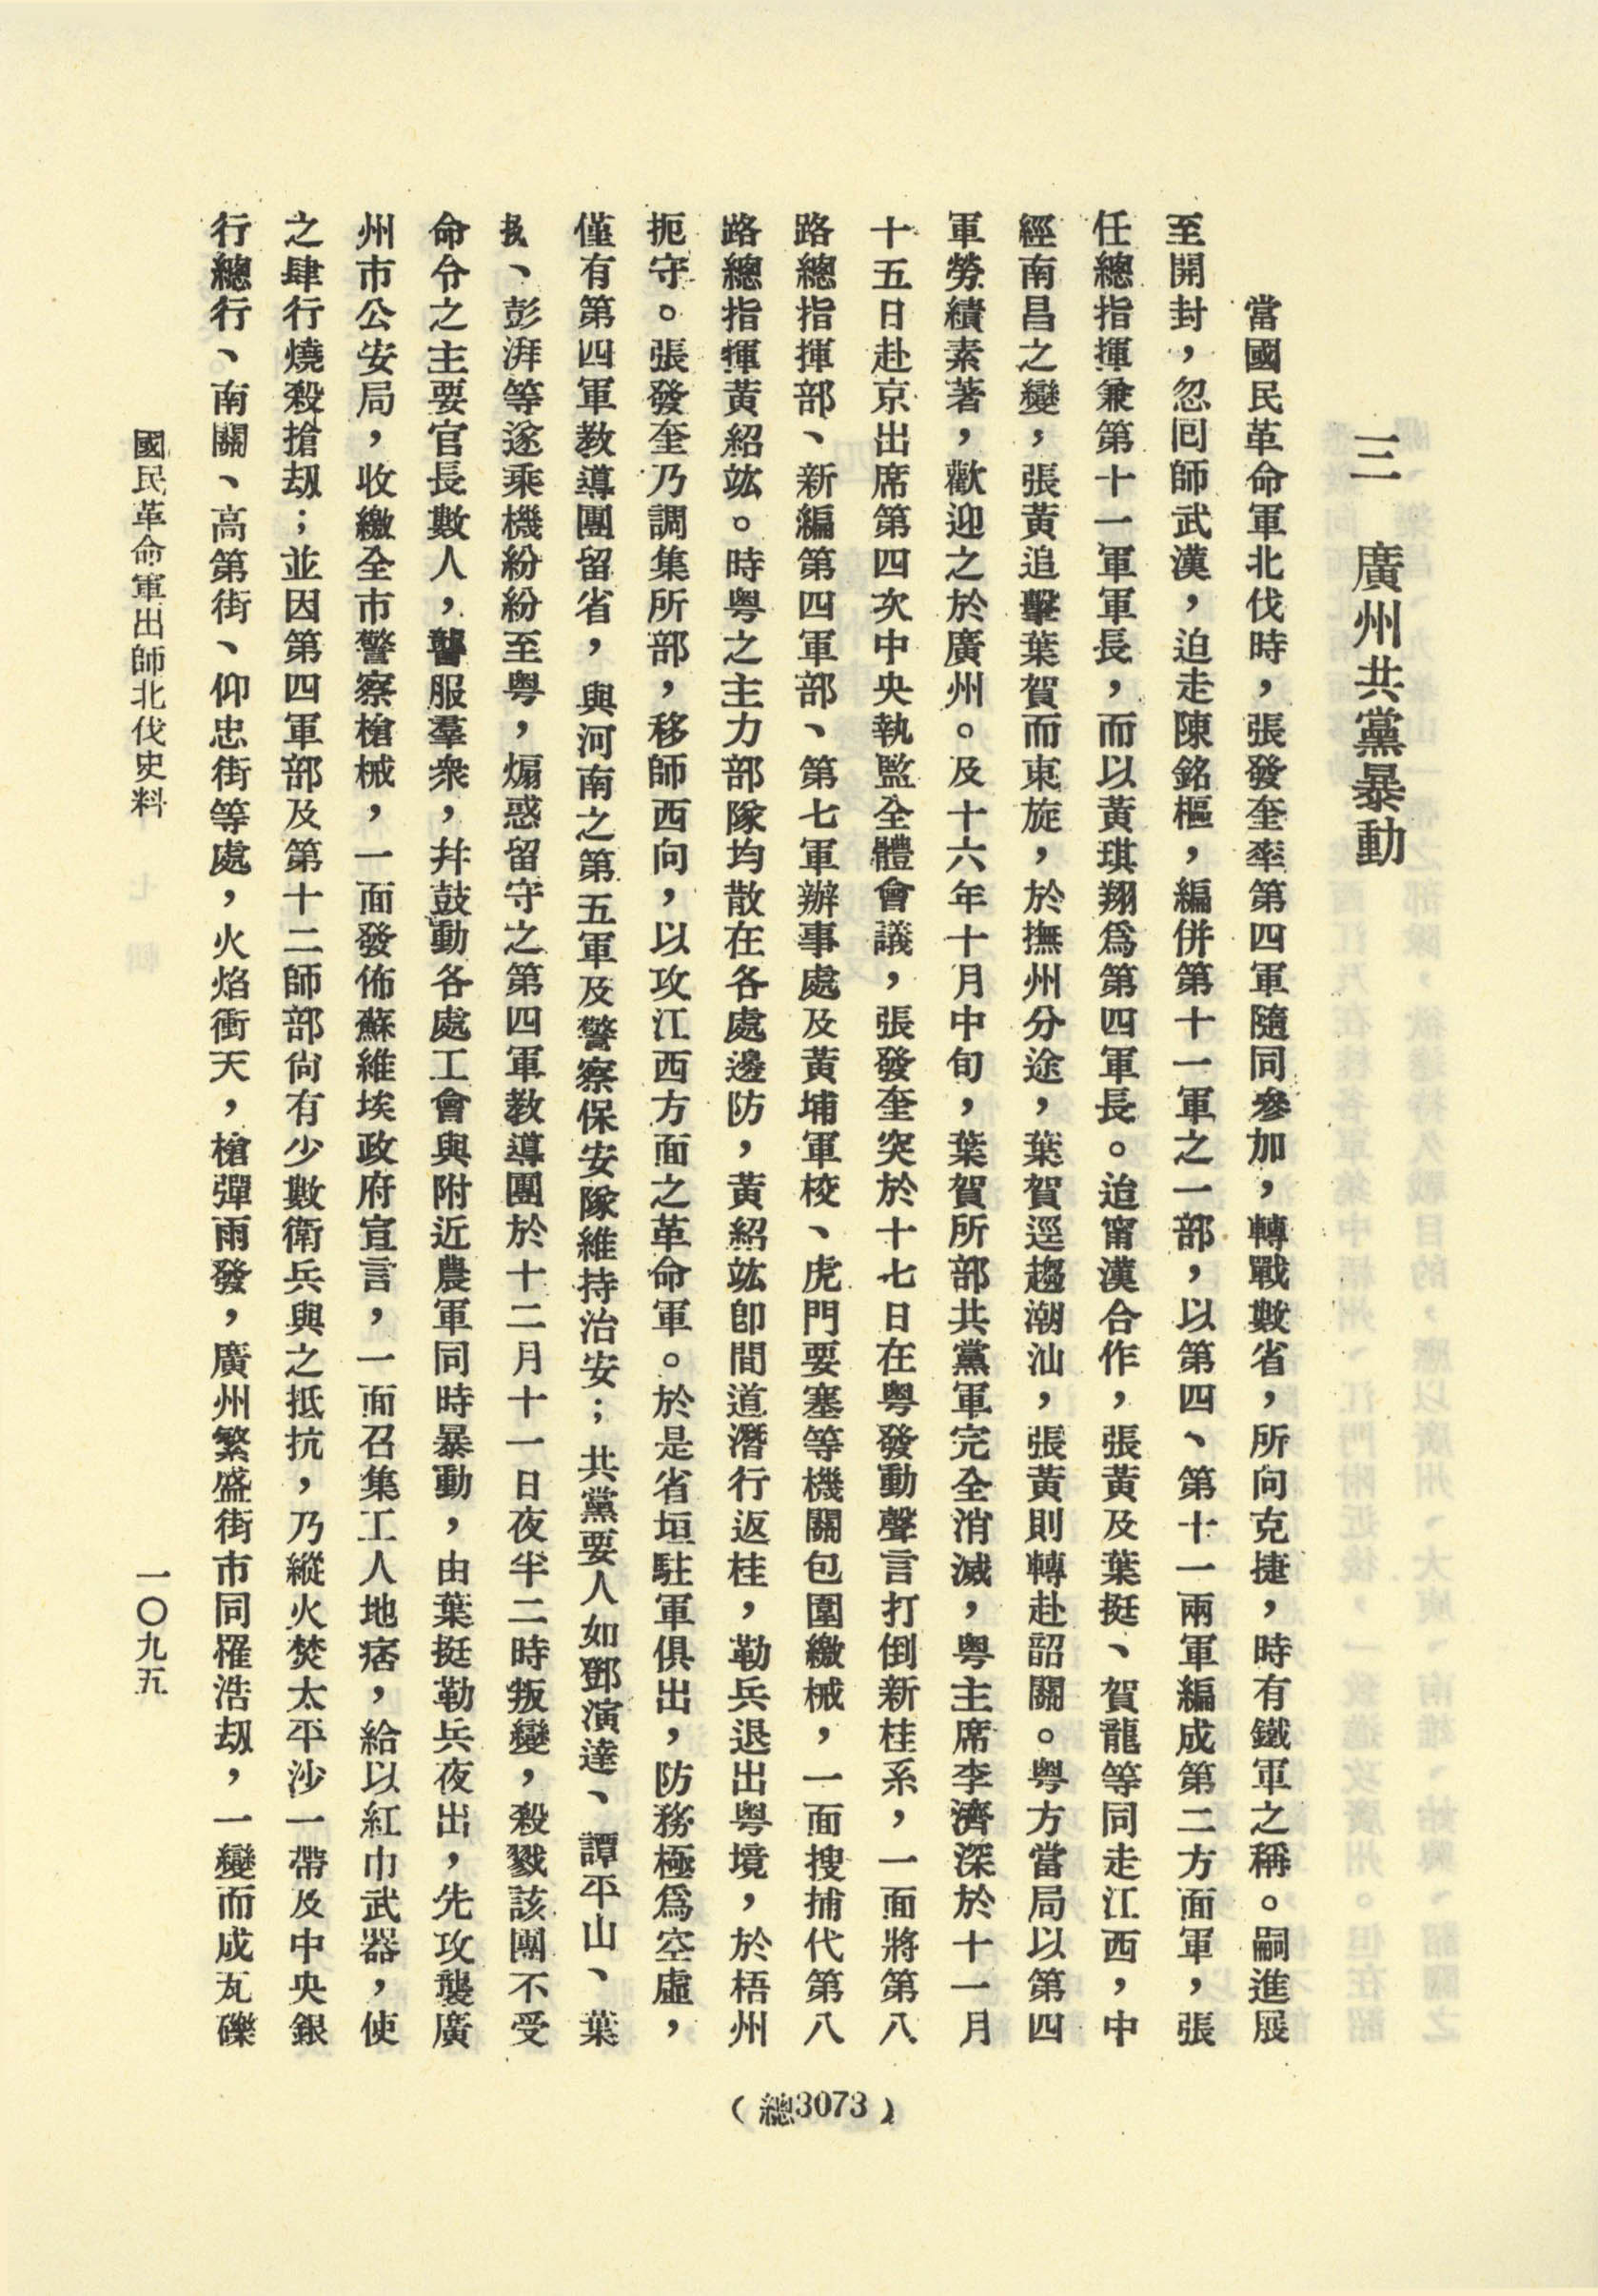 三　廣州共黨暴動
當國民革命軍北伐時，張發奎率第四軍隨同參加，轉戰數省，所向克捷，時有鐵軍之稱。嗣進展
至開封，忽回師武漢，迫走陳銘樞，編併第十一軍之一部，以第四、第十一兩軍編成第二方面軍，張
任總指揮兼第十一軍軍長，而以黃琪翔爲第四軍長。迨甯漢合作，張黃及葉挺、賀龍等同走江西，中
經南昌之變，張黃追擊葉賀而東旋，於撫州分途，葉賀逕趨潮汕，張黃則轉赴韶關。粤方當局以第四
軍勞績素著，歡迎之於廣州。及十六年十月中旬，葉賀所部共黨軍完全消滅，粤主席李濟深於十一月
十五日赴京出席第四次中央執監全體會議，張發奎突於十七日在粤發動聲言打倒新桂系，一面將第八
路總指揮部、新編第四軍部、第七軍辦事處及黃埔軍校、虎門要塞等機關包圍繳械，一面搜捕代第八
路總指揮黃紹竑。時粤之主力部隊均散在各處邊防，黃紹竑卽間道潛行返桂，勒兵退出粤境，於梧州
扼守。張發奎乃調集所部，移師西向，以攻江西方面之革命軍。於是省垣駐軍俱出，防務極爲空虛，
僅有第四軍教導團留省，與河南之第五軍及警察保安隊維持治安；共黨要人如鄧演達、譚平山、葉
挺、彭湃等遂乘機紛紛至粤，煽惑留守之第四軍教導團於十二月十一日夜半二時叛變，殺戮該團不受
命令之主要官長數人，讋服羣衆，幷鼓動各處工會與附近農軍同時暴動，由葉挺勒兵夜出，先攻襲廣
州市公安局，收繳全市警察槍械，一面發佈蘇維埃政府宣言，一面召集工人地痞，給以紅巾武器，使
之肆行燒殺搶刼；並因第四軍部及第十二師部尙有少數衛兵與之抵抗，乃縱火焚太平沙一帶及中央銀
行總行、南關、高第街、仰忠街等處，火焰衝天，槍彈雨發，廣州繁盛街市同罹浩刼，一變而成瓦礫
國民革命軍出師北伐史料
一〇九五
（總3073）